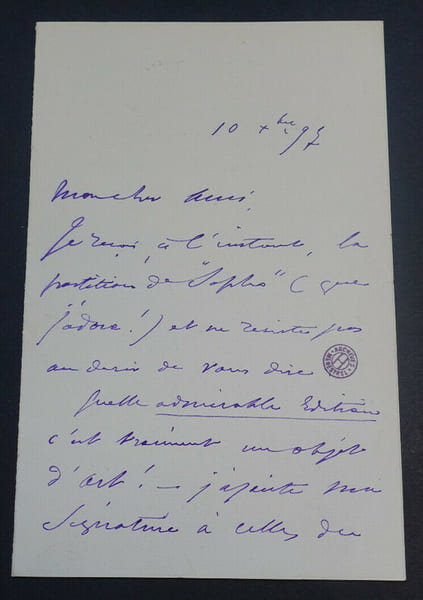 10 Xbre 97
Mon cher ami,
Je reçois, à l'instant, la
partition de "Sapho" (que
j'adore!) et ne résiste pas
au désir de vous dire
quelle admirable Edition
c'est vraiment un objet
d'art! – j'ajoute ma
Signature à celles du
ARCHIVES
HEUGEL